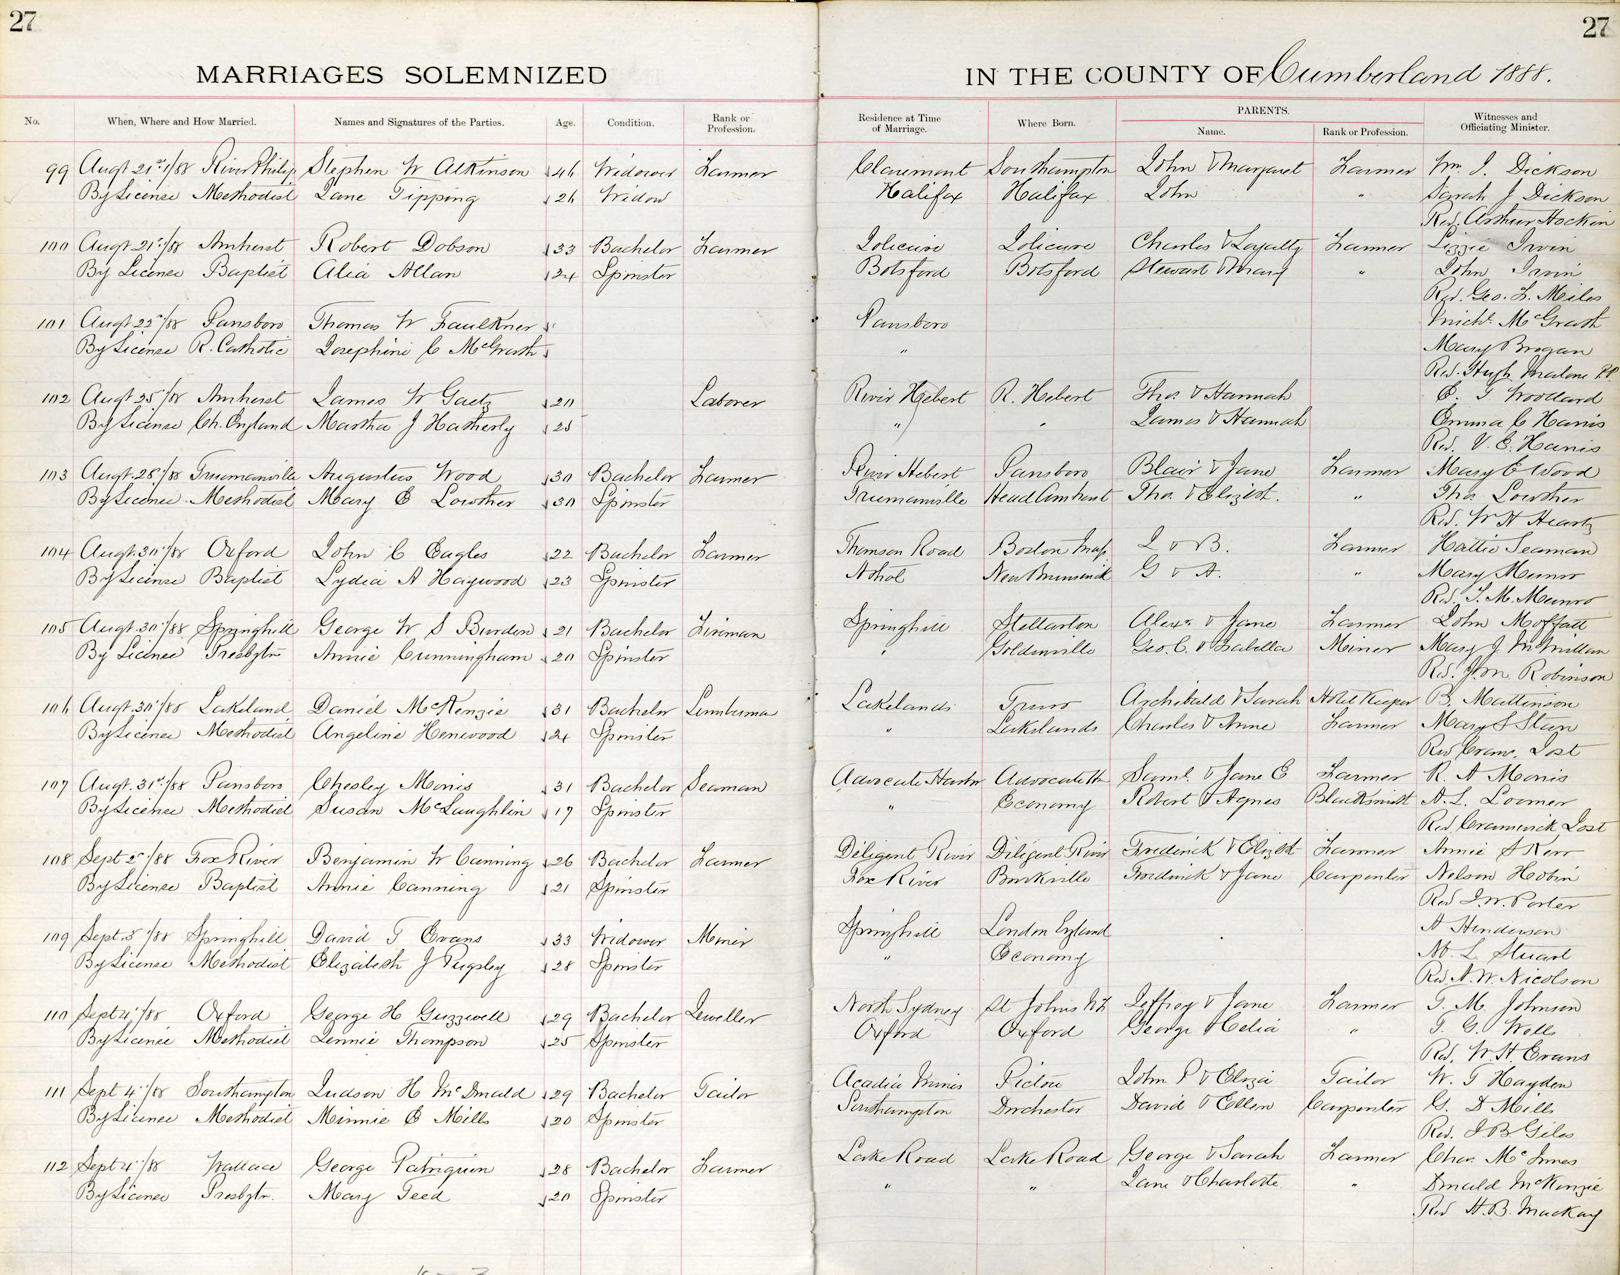 27 27
MARRIAGES SOLEMNIZED IN THE COUNTY OF Cumberland 1888.
No. When, Where and How Married. Names and Signatures of the Parties. Age. Condition. Rank or Profession. Residence at Time of Marriage. Where Born. PARENTS. Name. Rank or Profession. Witnesses and Officiating Minister.
99 Augt 21st/88 River Philip Stephen W Atkinson 46 Widower Farmer Claremont Southampton John & Margaret Farmer Wm. J. Dickson
By License Methodist Jane Tipping 26 Widow Halifax Halifax John " Sarah J Dickson
Rev. Arthur Hockin
100 Augt 21st/88 Amherst Robert Dobson 33 Bachelor Farmer Jolicure Jolicure Charles & Loyalty Farmer Lizzie Irvin
By License Baptist Alia Allan 24 Spinster Botsford Botsford Stewart & Mary " John Irvin
Rev. Geo. F. Miles
101 Augt 22nd/88 Parrsboro Thomas W Faulkner Parrsboro Michl. McGrath
By License R. Catholic Josephine C McGrath " Mary Brogan
Rev. Hugh PP
102 Augt 25/88 Amherst James W Gaetz 20 Laborer River Hebert R. Hebert Thos & Hannah E. T Woodland
By License Ch. England Martha J Hatherly 25 " " James & Hannah Emma C Harris
Rev. V. E. Harris
103 Augt. 28/88 Truemanville Augustus Wood 30 Bachelor Farmer River Hebert Parrsboro Blair & Jane Farmer Mary E Wood
By License Methodist Mary E Lowther 30 Spinster Truemanville Head Amherst Thos & Elizbt. " Thos Lowther
Rev. W H Heartz
104 Augt. 30/88 Oxford John C Eagles 22 Bachelor Farmer Thomson Road Boston Mass J & B. Farmer Hattie Seaman
By License Baptist Lydia A Haywood 23 Spinster New Brunswick G & A. " Mary Munro
Rev. T. M. Munro
105 Augt. 30/88 Springhill George W S Burden 21 Bachelor Fireman Springhill Stellarton Alexr & Jane Farmer John Moffatt
By License Presbytn Annie Cunningham 20 Spinster " Goldenville Geo. C. & Isabella Miner Mary J McMillan
Rev. J. M. Robinson
106 Augt. 30/88 Lakeland Daniel McKenzie 31 Bachelor Lumberman Lakelands Truro Archibald & Sarah Hotel Keeper B. Mattinson
By License Methodist Angeline Henwood 24 Spinster " Lakelands Charles & Anne Farmer Mary S
Rev Crans. Jost
107 Augt. 31st/88 Parrsboro Chesley Morris 31 Bachelor Seaman Advocate Harbor Advocate H Saml. & Jane E Farmer R. A Morris
By License Methodist Susan McLaughlin 17 Spinster " Economy Robert & Agnes Blacksmith A. L. Loomer
Rev Cranswick Jost
108 Sept 2/88 Fox River Benjamin W Canning 26 Bachelor Farmer Diligent River Diligent River Frederick & Elizbt Farmer Annie S Kerr
By License Baptist Annie Canning 21 Spinster Fox River Frederick & Jane Carpenter Nelson
Rev J. W. Porter
109 Sept. 3/88 Springhill David T Evans 33 Widower Miner Springhill London England A Henderson
By License Methodist Elizabeth J Pugsley 28 Spinster " Economy M. L Stuart
Rev A. W. Nicolson
110 Sept 4/88 Oxford George H Guzzwell 29 Bachelor Jeweller North Sydney St Johns Nfl Jeffrey & Jane Farmer T. M. Johnson
By License Methodist Jennie Thompson 25 Spinster Oxford Oxford George & Celia " T. G. Wells
Rev. W. H. Evans
111 Sept 4/88 Southampton Judson H McDonald 29 Bachelor Tailor Acadia Mines Pictou John P & Eliza Tailor W. T Hayden
By License Methodist Minnie E Mills 20 Spinster Southampton Dorchester David & Ellen Carpenter G. D Mills
Rev. J B Giles
112 Sept 4/88 Wallace George Patriquin 28 Bachelor Farmer Lake Road Lake Road George & Sarah Farmer Chas. McInnes
By License Presbytn. Mary Teed 20 Spinster " " Jane & Charlotte " Donald McKenzie
Rev H. B. Mackay